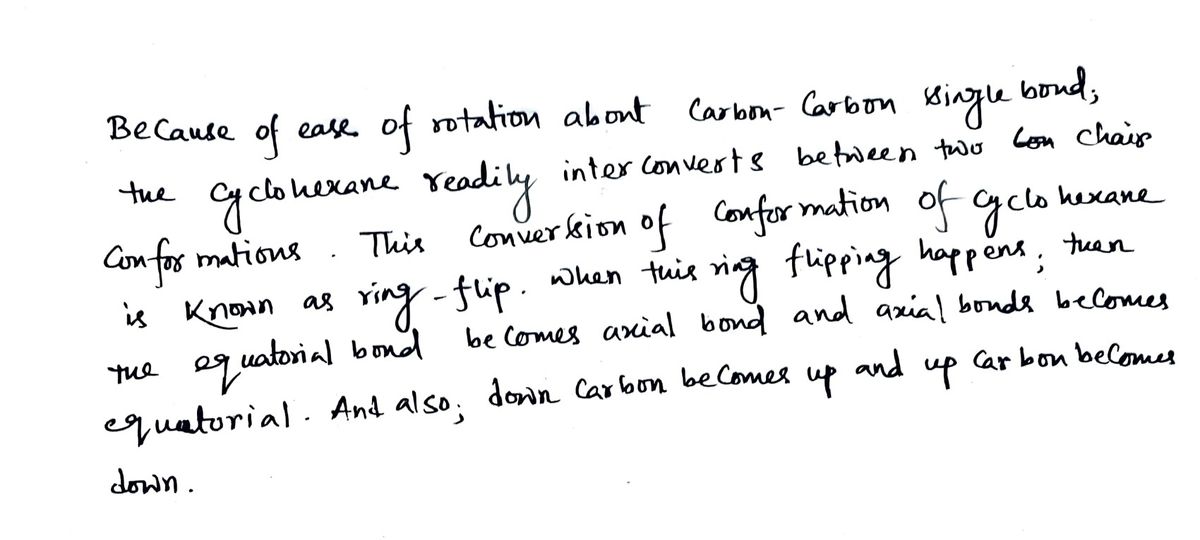 Because of ease of rotation about Carbon-Carbon single bond;
the cyclohexane readily inter converts between two Con chair
Conformations. This Conversion of Conformation of cyclohexane
is Known as ring-flip. When this ring flipping happens; then
the equatorial bond becomes axial bond and axial bonds becomes
equatorial. And also; down Carbon becomes up and up Carbon becomes
down.